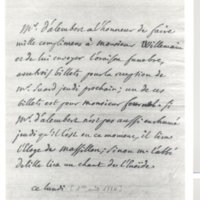 Mr. d'alembert a l'honneur de faire
mille complimens à monsieur Villemain
et de lui envoyer l'oraison funebre,
avec trois billets pour la reception de
Mr. suard jeudi prochain; un de ces
billets est pour monsieur
Mr. d'alembert n'est pas aussi enchainé
jeudi en ce moment, il lira
l'Eloge de massillon; sinon mr l'abbé
delille lira un chant de l'Eneide.
ce lundi